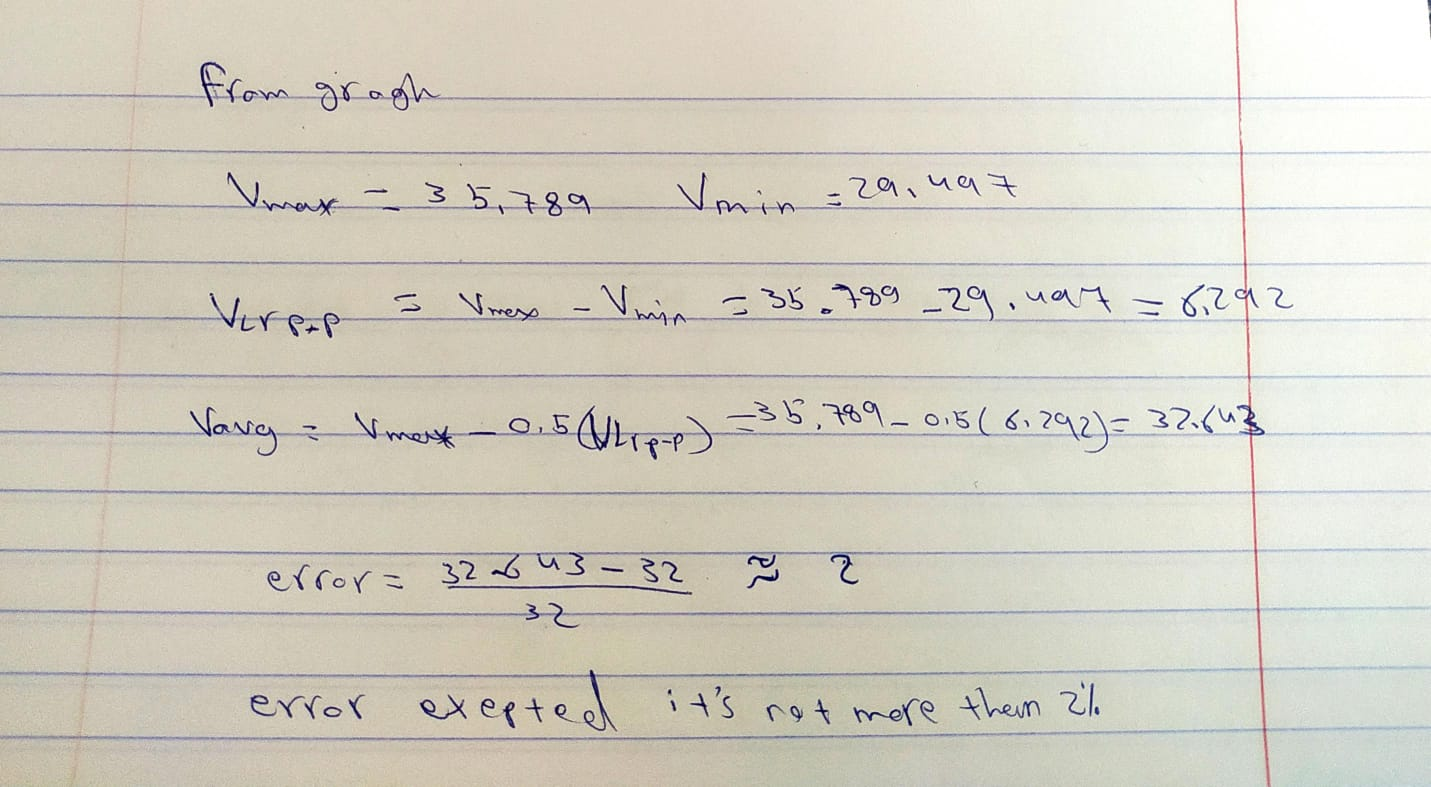 from gragh
Vmax = 35,789 Vmin = 29,497
VLr p-p = Vmax - Vmin = 35.789 - 29.497 = 6,292
Vavg = Vmax - 0.5 (VLr p-p) = 35,789 - 0.5 (6.292) = 32.643
error = 32.643 - 32 ≈ 2
32
error exepted it's not more than 2%